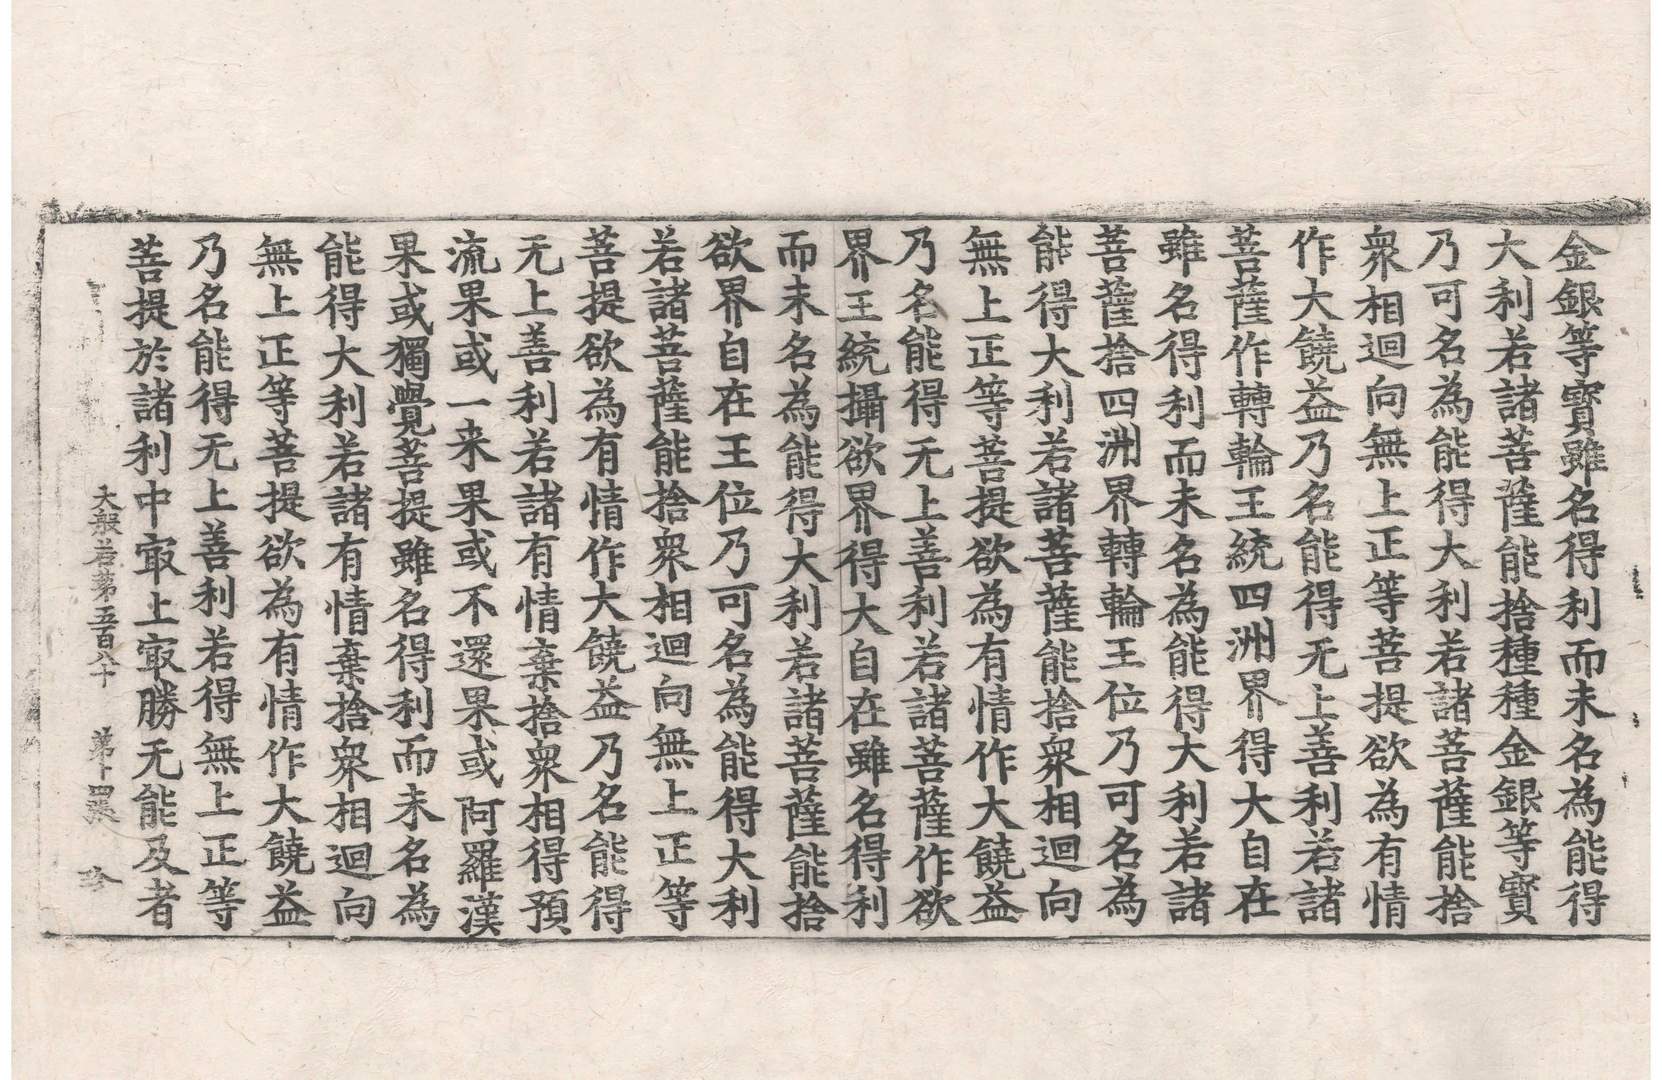 金銀等寳雖名得利而未名為能得
大利若諸菩薩能捨種種金銀等寳
乃可名為能得大利若諸菩薩能捨
衆相迴向無上正等菩提欲為有情
作大饒益乃名能得无上善利若諸
菩薩作轉輪王統四洲界得大自在
雖名得利而未名為能得大利若諸
菩薩捨四洲界轉輪王位乃可名為
能得大利若諸菩薩能捨衆相迴向
無上正等菩提欲為有情作大饒益
乃名能得无上善利若諸菩薩作欲
界王統攝欲界得大自在雖名得利
而未名為能得大利若諸菩薩能捨
欲界自在王位乃可名為能得大利
若諸菩薩能捨衆相迴向無上正等
菩提欲為有情作大饒益乃名能得
无上善利若諸有情棄捨衆相得預
流果或一来果或不還果或阿羅漢
果或獨覺菩提雖名得利而未名為
能得大利若諸有情棄捨衆相迴向
無上正等菩提欲為有情作大饒益
乃名能得无上善利若得無上正等
菩提於諸利中㝡上㝡勝无能及者
大般若第五百八十 第十四張 珍